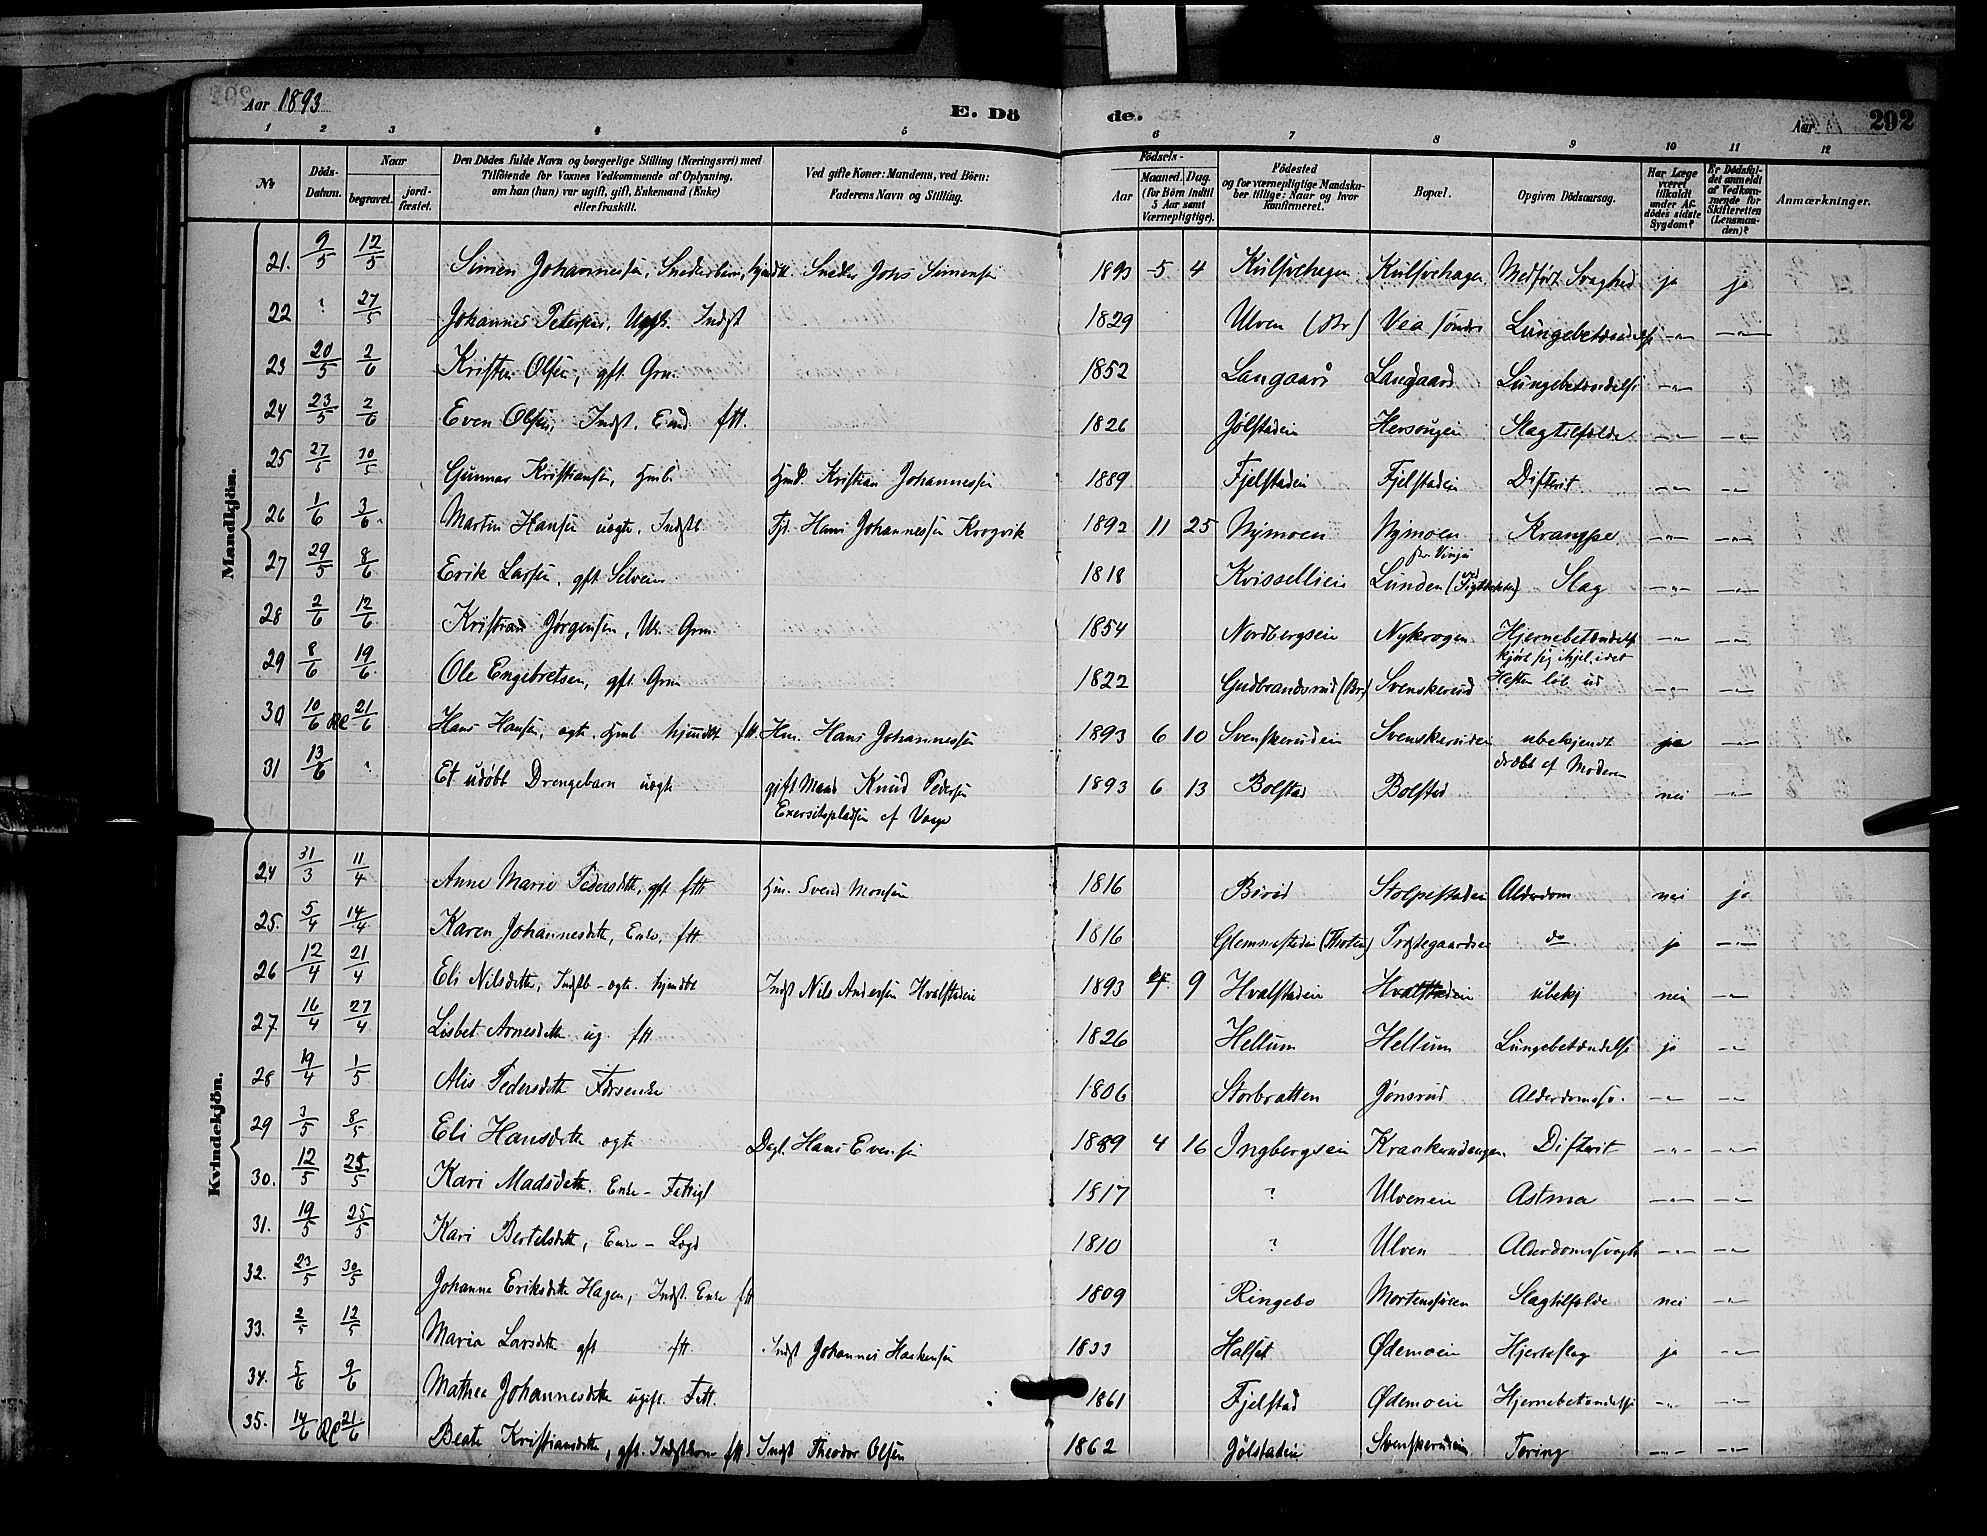 Aar 1893 E. Dö de. Aar 292
1 2 3 4 5 6 7 8 9 10 11 12
No Döds-Datum. Naar begravet. jord-fæstet. Den Dödes fulde Navn og borgerlige Stilling (Næringsvei) med Tilföiende for Voxnes Vedkommende af Oplysning, om han (hun) var ugift, gift, Enkemand (Enke) eller fraskilt. Ved gifte Koner: Mandens, ved Börn: Faderens Navn og Stilling. Födsels- Aar Maaned. Dag. (for Börn indtil 5 Aar samt Værnepligtige). Födested og for værnepligtige Mandska-ber tillige: Naar og hvor konfirmeret. Bopæl. Opgiven Dödsaarsag. Har Læge været tilkaldt under Af-dödes sidste Sygdom? Er Dödsfal-det anmeldt af Vedkom-mende for Skifteretten (Lensman-den)? Anmærkninger.
Mandkjön.
21. 9/5 12/5 Simen Johannessen, Snederbarn, hjmdt. Snedker Johs Simensen 1893 5 4 Kulsvehagen Kulsvehagen Medfødt Svaghed ja ja
22 ? 27/5 Johannes Petersen, Ugft. Indst 1829 Ulven (Br) Vea søndre Lungebetændelse -"- -"-
23 20/5 2/6 Kristen Olsen, gft. Grm. 1852 Langaard Langaard Lungebetændelse -"-
24 23/5 2/6 Even Olsen, Indst. Emd ftt. 1826 Jølstadeie Slagtilfælde -"- -"-
25 27/5 30/5 Gunnar Kristiansen, Hmb. Hmd. Kristian Johannessen 1889 Fjelstadeie Fjelstadeie Difterit -"- -"-
26 1/6 3/6. Martin Hansen uægte. Indstb Fdr. Hans Johannessen Krogvik 1892 11 25 Nymoen Nymoen Krampe -"- -"-
27 29/5 8/6 Erik Larsen, gft. Selveier 1818 Kvisselleie Lunden Slag -"- -"-
28 2/6 12/6 Kristian Jørgensen, Ug. Grm. 1854 Nordbergseie Nykrogen Hjernebetændelse -"- -"-
29 8/6 19/6 Ole Engebretsen, gft. Grm 1822 Gudbrandsrud (Br) Svenskerud kjørte sig ihjel, idet Hesten løb ud -"- -"-
30 10/6 21/6 Hans Hansen, ægte, Hmb hjmdbt ftt. Hm. Hans Johannessen 1893 6 10 Svenskerudeie Svenskerudeie ubekjendt ja -"-
31 13/6 ? Et udøbt Drengebarn uægte gift Mand Knud Pedersen 1893 6 13 Bolstad Bolstad dræbt af Moderen nei -"-
Exersitspladsen af Vang
Kvindekjön.
24 31/3 11/4 Anne Marie Pedersdtr, gft. ftt Hm. Svend Monsen 1816 Birid Stolpestadeie Alderdom nei ja
25. 5/4 14/4 Karen Johannesdtr, Enke, ftt 1816 Glemmestadeie (Thoten) Prestegaardseie do ja -"-
26 12/4 21/4 Eli Nilsdtr, Indstb - ægte. hjmdbt Indst Nils Andersen Hvalstadeie 1893 4 9 Hvalstadeie Hvalstadeie ubekj nei -"-
27 16/4 27/4 Lisbet Arnesdtr ug. ftt 1826 Hellum Hellum Lungebetændelse ja -"-
28 19/4 1/5 Alis Pedersdtr 1806 Storbratten Jønsrud -"- -"-
29 3/5 8/5 Eli Hansdtr ægte Dagl. Hans Evensen 1889 4 16 Ingbergseie Difterit -"- -"-
30. 12/5 25/5 Kari Madsdtr. Enke - Fattigl 1817 ? Ulveneie Astma -"- -"-
31. 19/5 25/5 Kari Bertelsdtr, Enke - Lægd 1810 ? Ulven Alderdomssvagh -"- -"-
32. 23/5 30/5 Johanne Eriksdtr Hagen, Indst. Enke ftt 1809 Ringebo Slagtilfælde nei -"-
33. 2/5 12/5 Maria Larsdtr gft ftt Indst Johannes Haakensen 1833 Halset Ødemoeie Hjerteslag ja -"-
34. 5/6 9/6 Mathea Johannesdtr ugift. Fatt. 1861 Fjelstad Ødemoeie Hjernebetændelse -"- -"-
35. 14/6 21/6 Beate Kristiansdtr, gft. Indstkone ftt Indst Theodor Olsen 1862 Jølstadeie Svenskerudeie Tæring -"- -"-